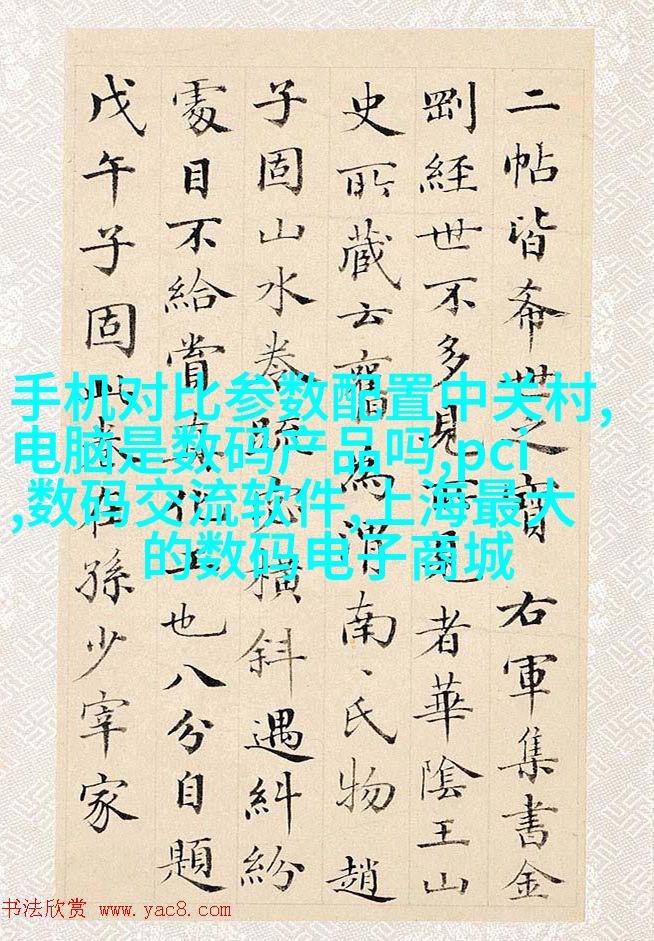 二帖皆希世之寶右軍集書金
剛經世不多見所見者華陰王山
史所藏云舊為渭南、氏物趙
子固山水卷疏密橫斜遇糾紛
處目不給賞真工也八分自題
戊午子固此卷在孫少宰家
手机对比参数配置中关村,
电脑是数码产品吗,pci
,数码交流软件,上海最大
的数码电子商城
书法欣赏 www.yac8.com